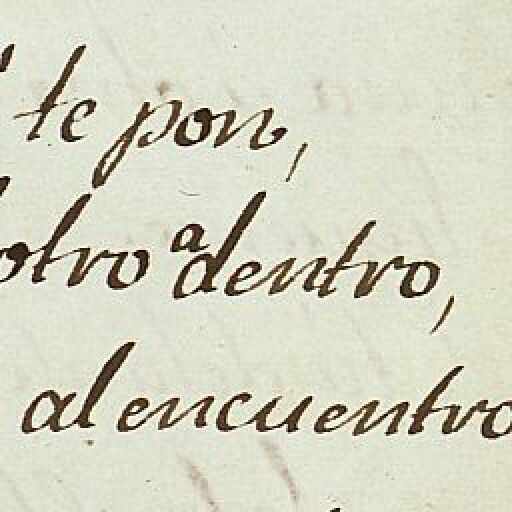 te pon,
otro a dentro,
al encuentro